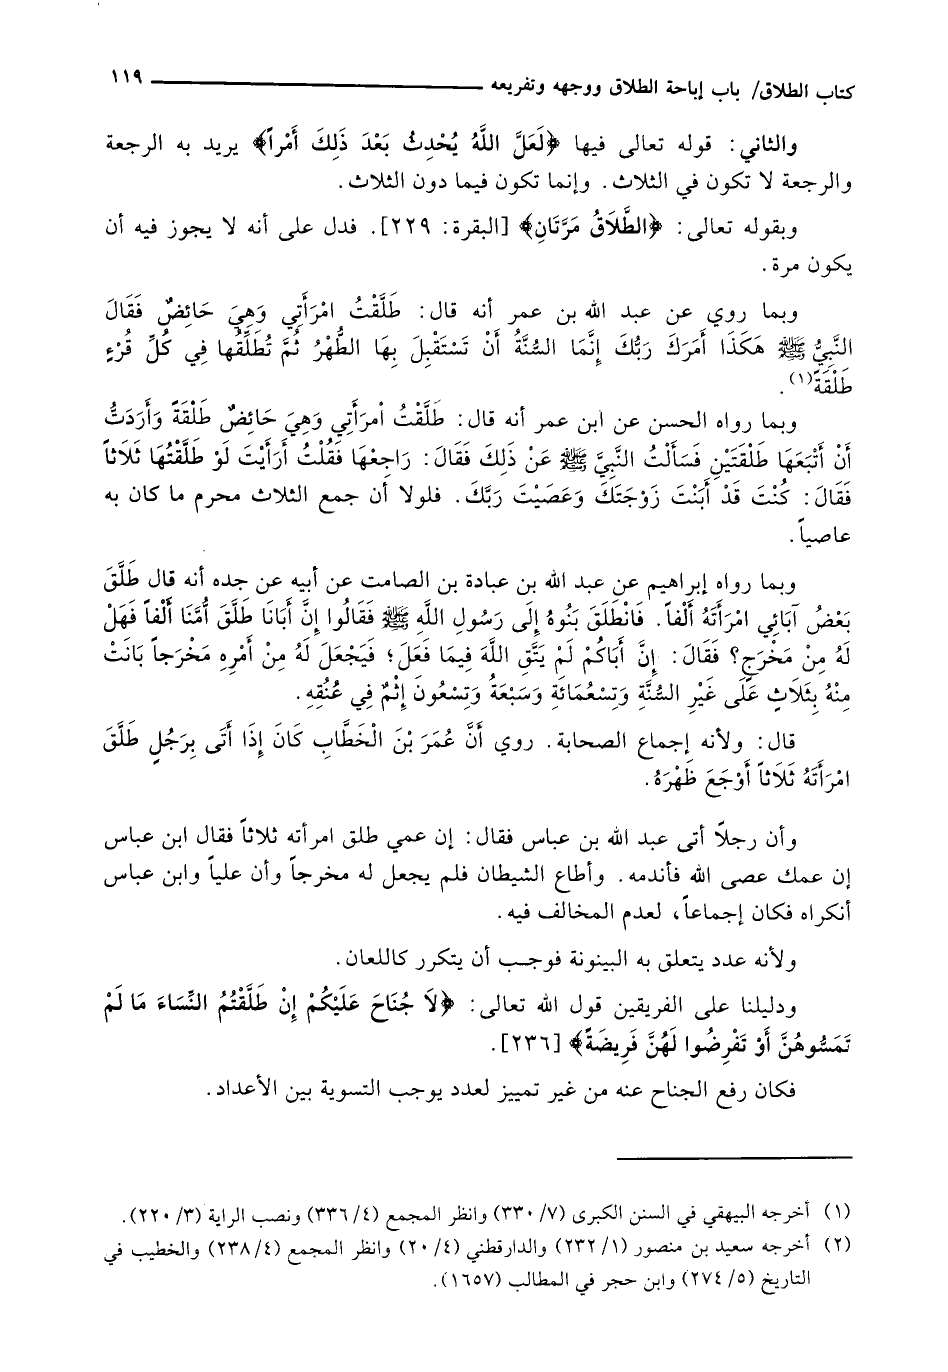 كتاب الطلاق/ باب إباحة الطلاق ووجهه وتفريعه ١١٩
والثاني: قوله تعالى فيها ﴿لَعَلَّ اللَّهُ يُحْدِثُ بَعْدَ ذَلِكَ أَمْراً﴾ يريد به الرجعة
والرجعة لا تكون في الثلاث. وإنما تكون فيما دون الثلاث.
وبقوله تعالى: ﴿الطَّلَاقُ مَرَّتَانِ﴾ [البقرة: ٢٢٩]. فدل على أنه لا يجوز فيه أن
يكون مرة.
وبما روي عن عبد الله بن عمر أنه قال: طَلَّقْتُ امْرَأَتِي وَهِيَ حَائِضٌ فَقَالَ
النَّبِيُّ ﷺ هَكَذَا أَمَرَكَ رَبُّكَ إِنَّمَا السُّنَّةُ أَنْ تَسْتَقْبِلَ بِهَا الطُّهْرُ ثُمَّ تُطَلِّقُها فِي كُلِّ قُرْءٍ
طَلْقَةً(١).
وبما رواه الحسن عن ابن عمر أنه قال: طَلَّقْتُ أمرَأَتِي وَهِيَ حَائِضٌ طَلْقَةً وَأَرَدَتُّ
أَنْ أَتْبَعَهَا طَلْقَتَيْنِ فَسَأَلْتُ النَّبِيَّ ﷺ عَنْ ذَلِكَ فَقَالَ: رَاجِعْهَا فَقُلْتُ أَرَأَيْتَ لَوْ طَلَّقْتُهَا ثَلَاثاً
فَقَالَ: كُنْتَ قَدْ أَبَنْتَ زَوْجَتَكَ وَعَصَيْتَ رَبَّكَ. فلولا أن جمع الثلاث محرم ما كان به
عاصياً.
وبما رواه إبراهيم عن عبد الله بن عبادة بن الصامت عن أبيه عن جده أنه قال طَلَّقَ
بَعْضُ آبَائِي امْرَأَتَهُ أَلْفاً. فَانْطَلَقَ بَنُوهُ إِلَى رَسُولِ اللَّهِ ﷺ فَقَالُوا إِنَّ أَبَانَا طَلَّقَ أُمَّنَا أَلْفاً فَهَلْ
لَهُ مِنْ مَخْرَجٍ؟ فَقَالَ: إِنَّ أَبَاكُمْ لَمْ يَتَّقِ اللَّهَ فِيمَا فَعَلَ؛ فَيَجْعَلَ لَهُ مِنْ أَمْرِهِ مَخْرَجاً بَانَتْ
مِنْهُ بِثَلَاثٍ عَلَى غَيْرِ السُّنَّةِ وَتِسْعُمَائَةِ وَسَبْعَةُ وَتِسْعُونَ إِثْمٌ فِي عُنُقِهِ.
قال: ولأنه إجماع الصحابة. روي أَنَّ عُمَرَ بْنَ الْخَطَّابِ كَانَ إِذَا أَتَى بِرَجُلٍ طَلَّقَ
امْرَأَتَهُ ثَلَاثاً أَوْجَعَ ظَهْرَهُ.
وأن رجلاً أتى عبد الله بن عباس فقال: إن عمي طلق امرأته ثلاثاً فقال ابن عباس
إن عمك عصى الله فأندمه. وأطاع الشيطان فلم يجعل له مخرجاً وأن علياً وابن عباس
أنكراه فكان إجماعاً، لعدم المخالف فيه.
ولأنه عدد يتعلق به البينونة فوجب أن يتكرر كاللعان.
ودليلنا على الفريقين قول الله تعالى: ﴿لَا جُنَاحَ عَلَيْكُمْ إِنْ طَلَّقْتُمُ النِّسَاءَ مَا لَمْ
تَمَسُّوهُنَّ أَوْ تَفْرِضُوا لَهُنَّ فَرِيضَةً﴾ [٢٣٦].
فكان رفع الجناح عنه من غير تمييز لعدد يوجب التسوية بين الأعداد.
(١) أخرجه البيهقي في السنن الكبرى (٧/ ٣٣٠) وانظر المجمع (٤/ ٣٣٦) ونصب الراية (٣/ ٢٢٠).
(٢) أخرجه سعيد بن منصور (١/ ٢٣٢) والدارقطني (٤/ ٢٠) وانظر المجمع (٤/ ٢٣٨) والخطيب في
التاريخ (٥/ ٢٧٤) وابن حجر في المطالب (١٦٥٧).